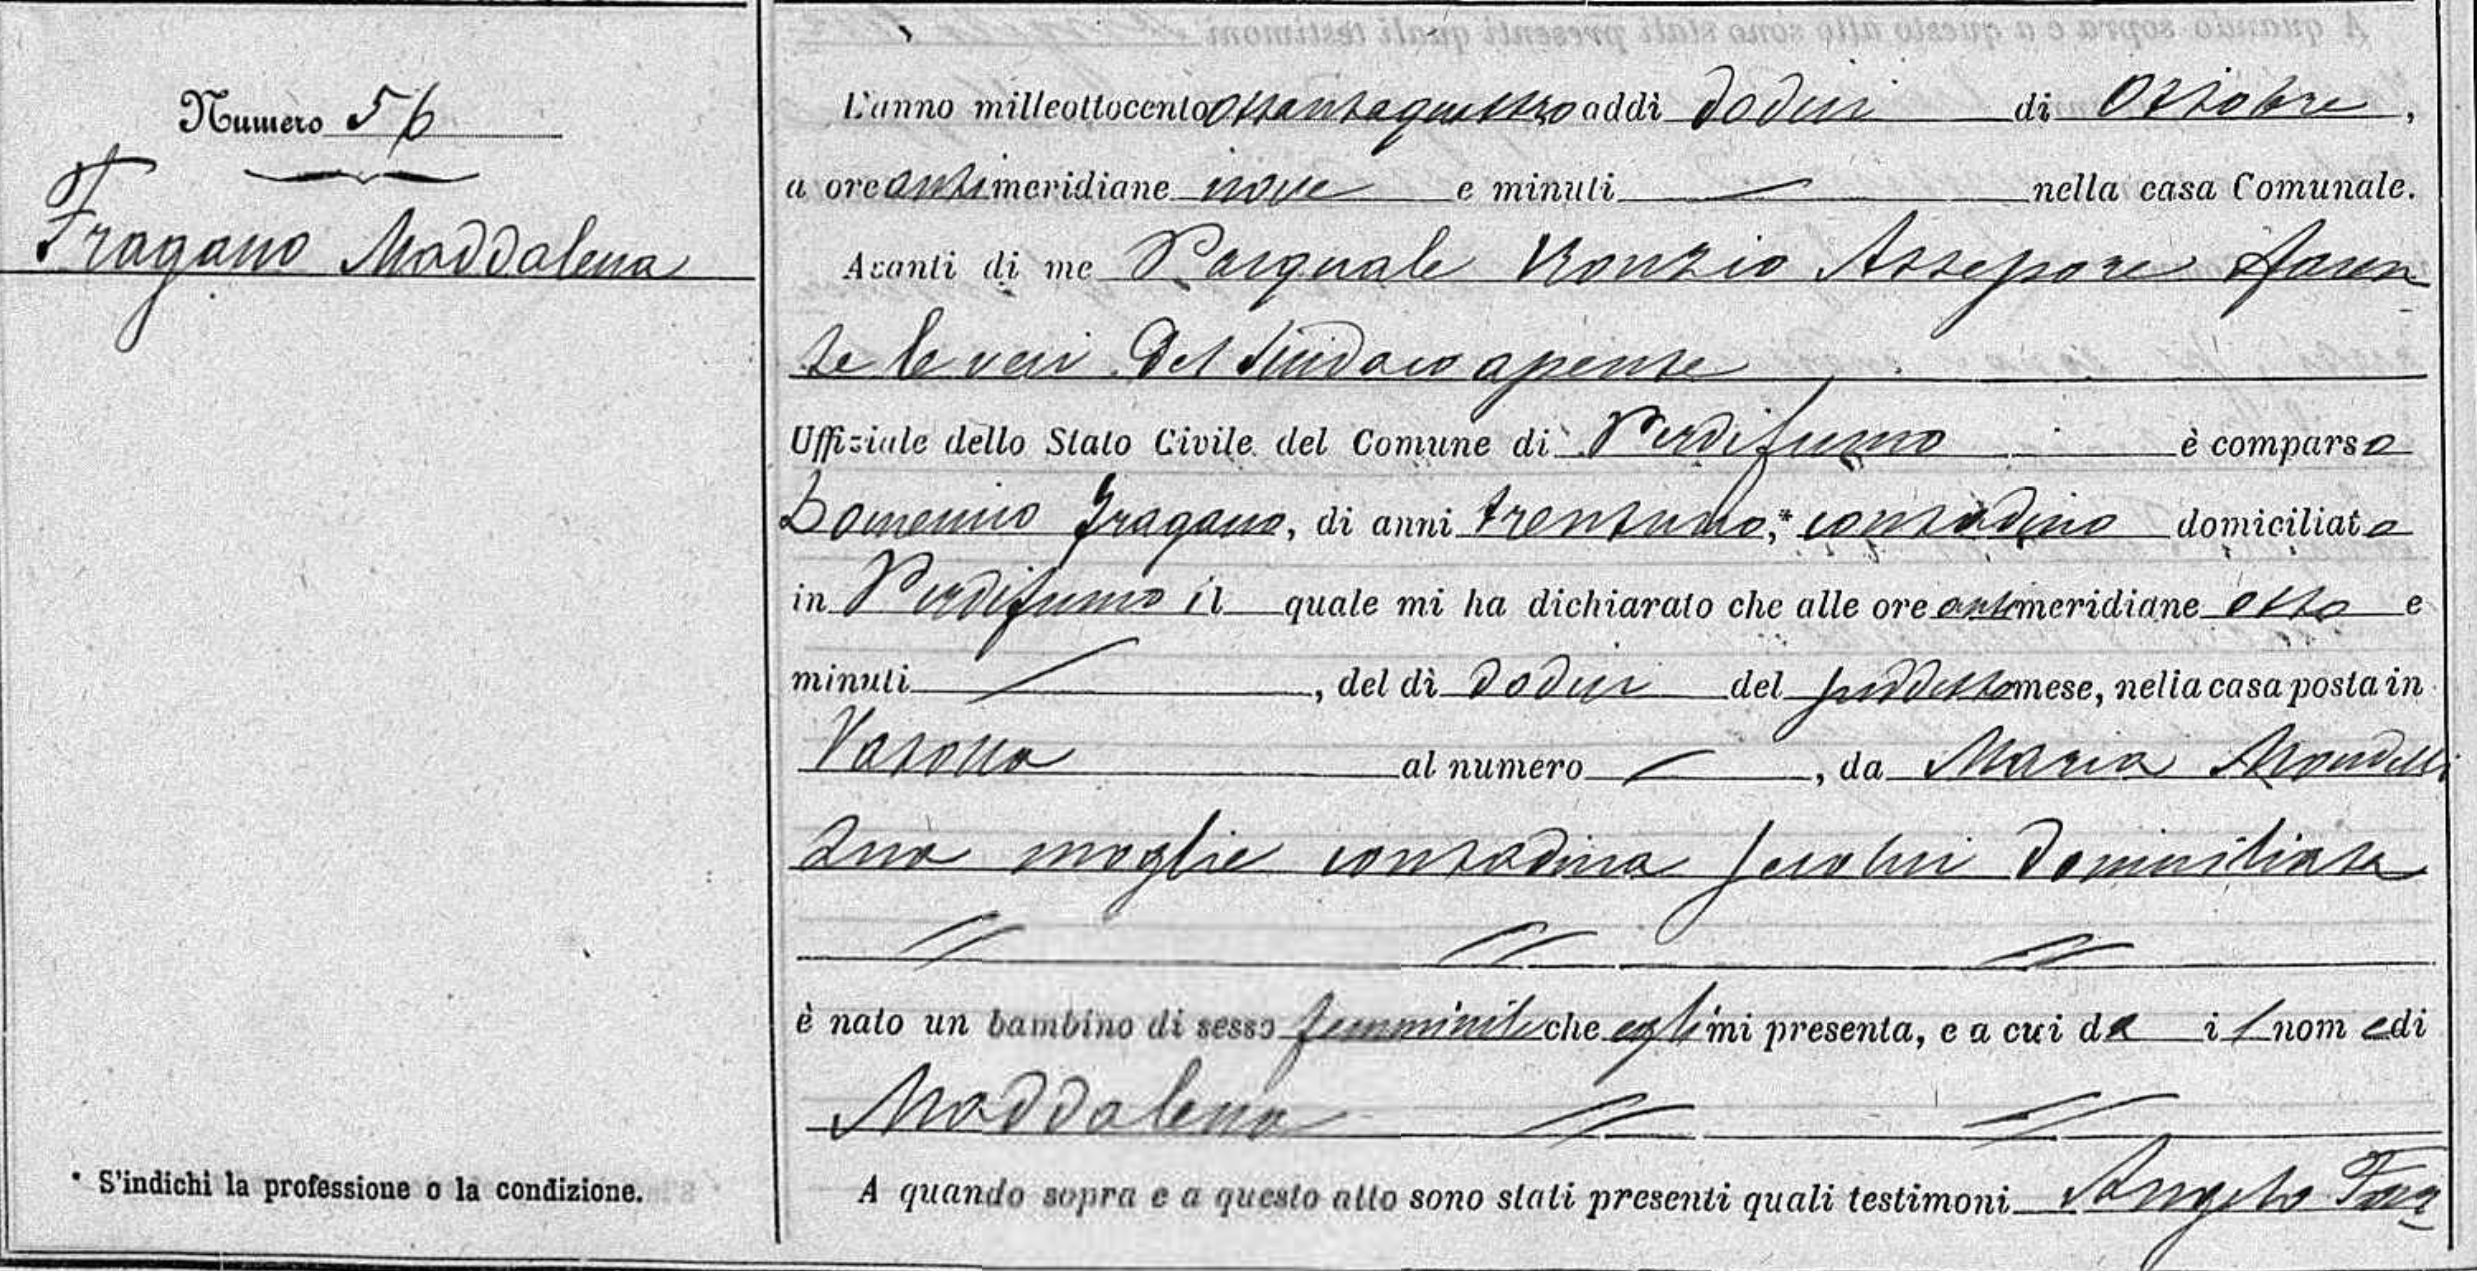 Numero 56
Fragano Maddalena
L'anno milleottocento ottantaquattro addì dodici di Ottobre,
a ore antimeridiane nove e minuti — nella casa Comunale.
Avanti di me Pasquale Ronzio Assessore facen
te le veci del Sindaco assente
Uffiziale dello Stato Civile del Comune di Perdifumo è comparso
Domenico Fragano, di anni trentuno,* contadino domiciliato
in Perdifumo il quale mi ha dichiarato che alle ore antimeridiane otto e
minuti —, del dì dodici del suddetto mese, nella casa posta in
Vatolla al numero —, da Maria Mondelli
sua moglie contadina seco lui domiciliata
è nato un bambino di sesso femminile che egli mi presenta, e a cui da il nome di
Maddalena
A quando sopra e a questo atto sono stati presenti quali testimoni Angelo
* S'indichi la professione o la condizione.